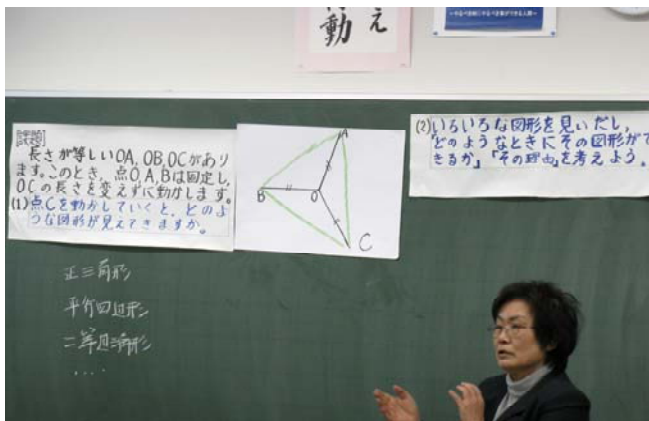 動
え
[課題]
長さが等しいOA,OB,OCがあり
ます。このとき、点O,A,Bは固定し、
OCの長さを変えずに動かします。
(1)点Cを動かしていくと、どのよ
うな図形が見えてきますか。
A
B
O
C
(2)いろいろな図形を見いだし、
「どのようなときにその図形がで
きるか」「その理由」を考えよう。
正三角形
平行四辺形
二等辺三角形
....